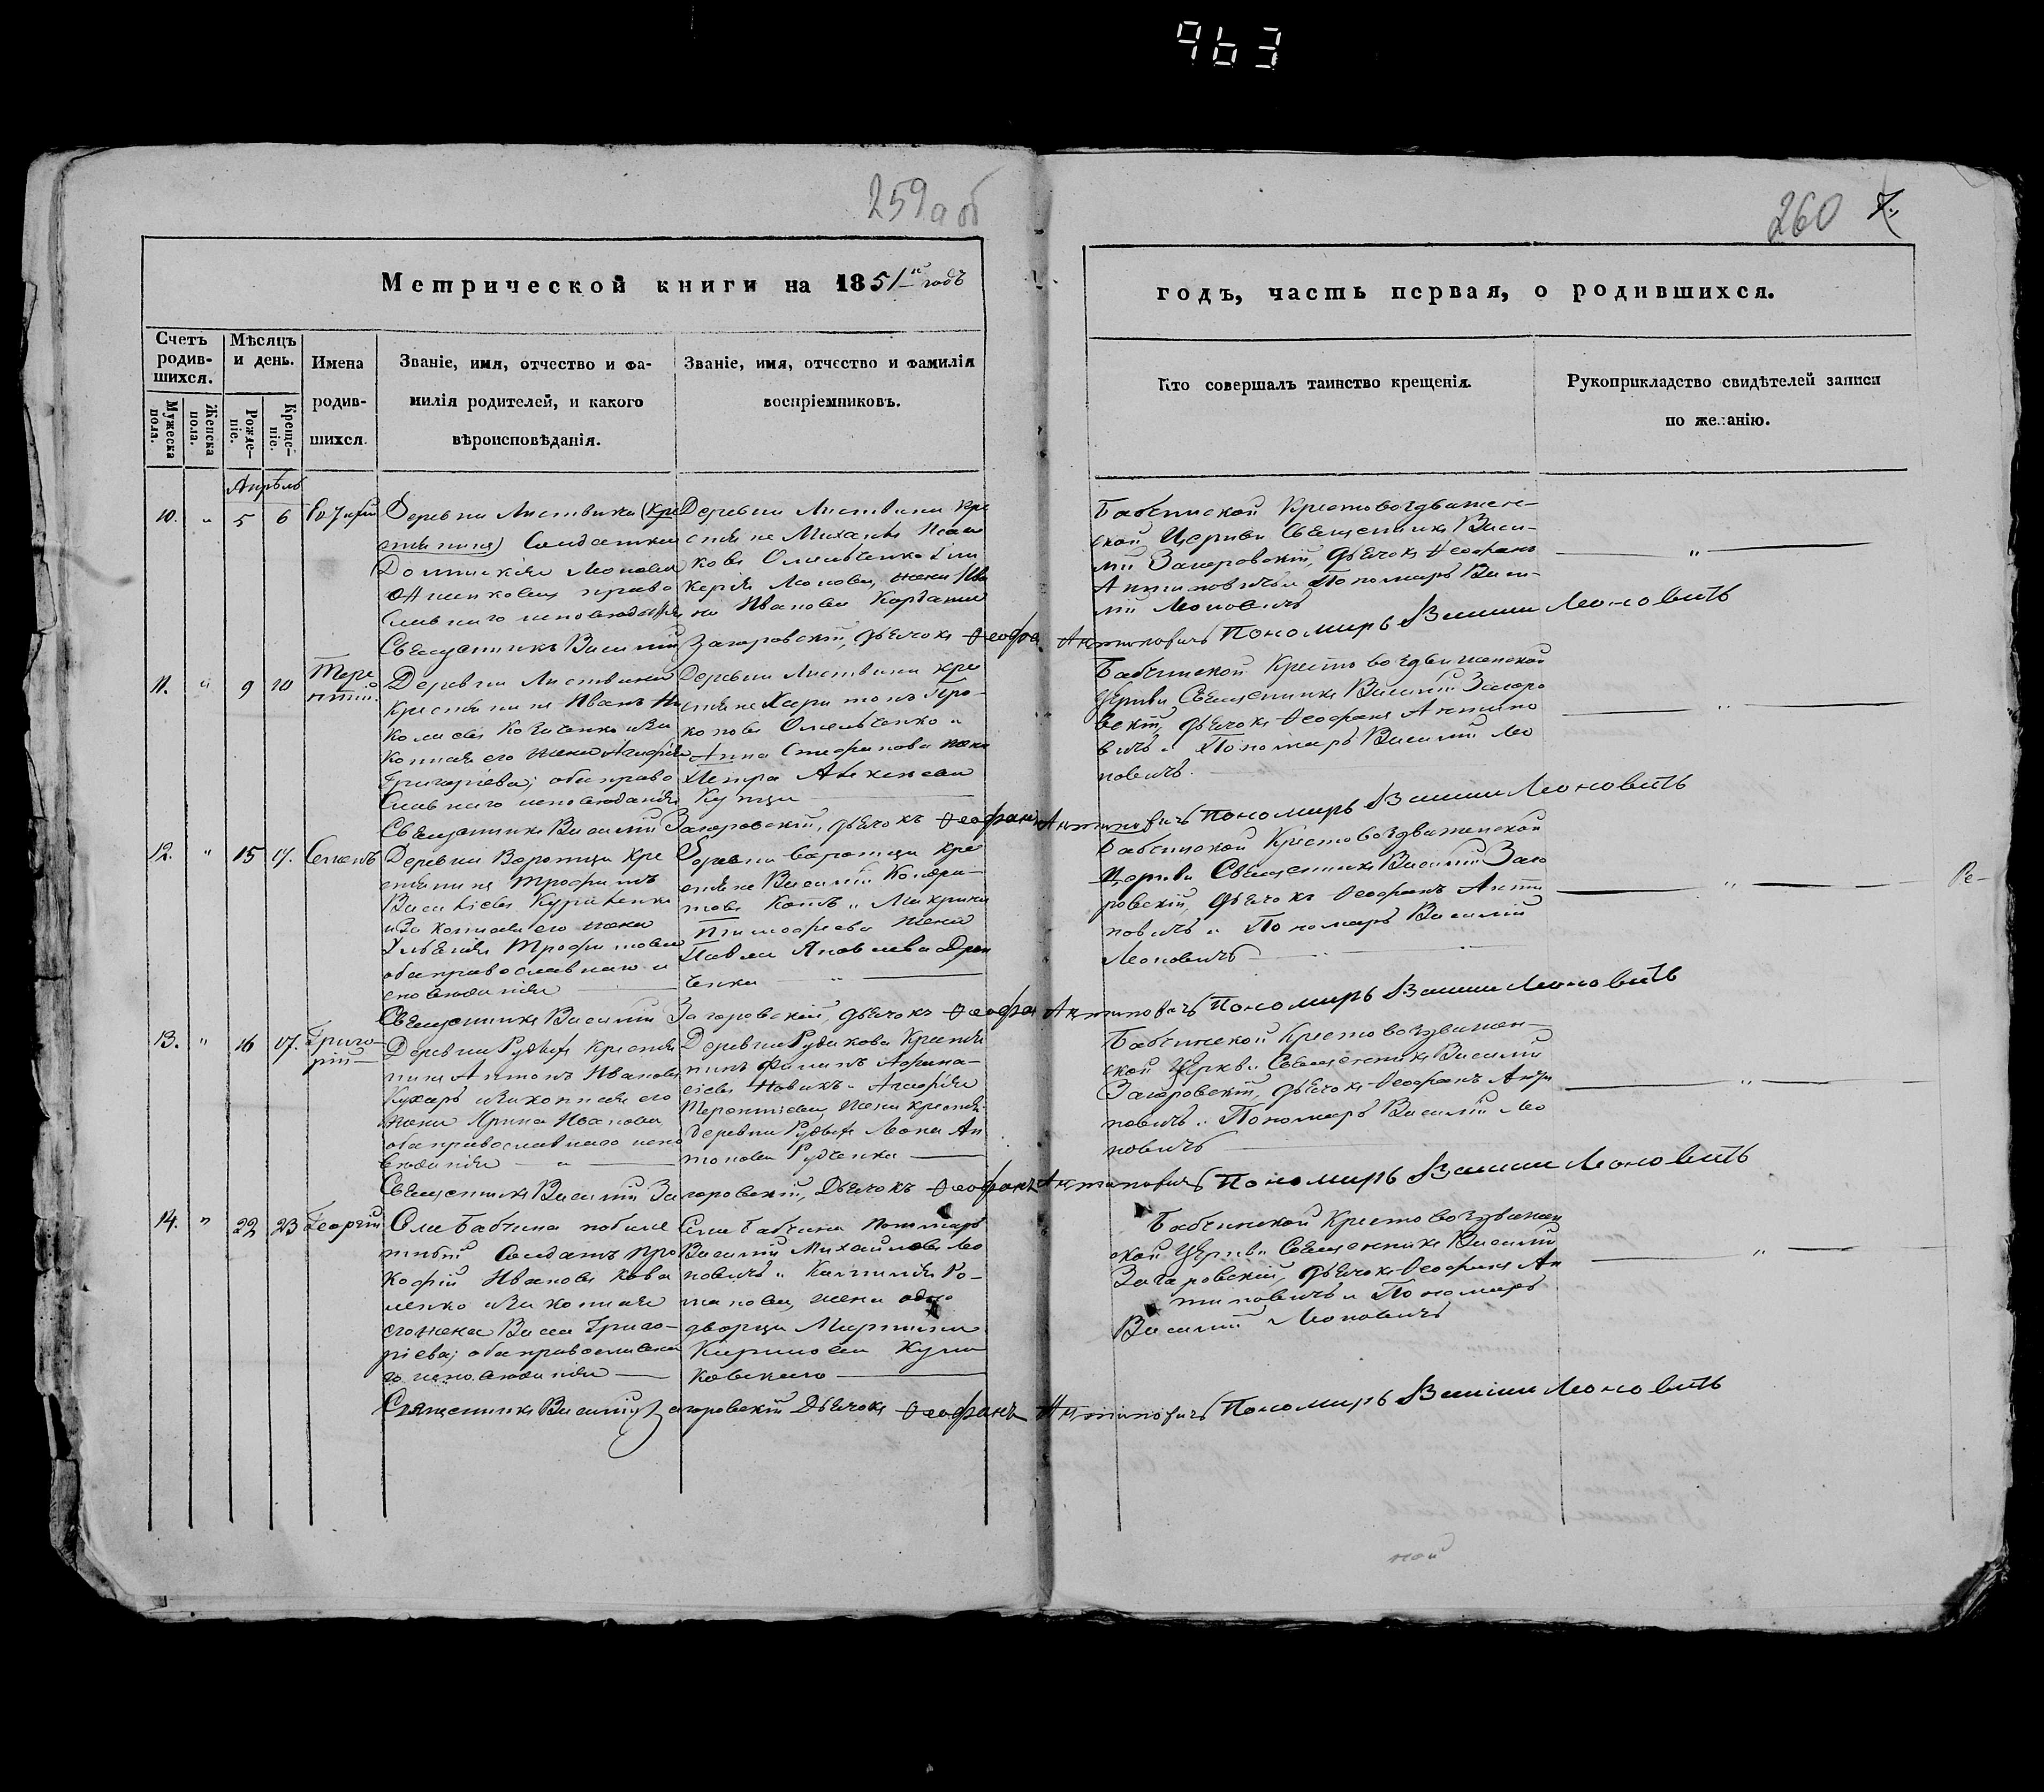 963
259а об
260
7.
Метрической книги на 1851й годъ
годъ, часть первая, о родившихся.
Счетъ родив-шихся.
Мѣсяцъ и день.
Имена родив-шихся.
Званіе, имя, отчество и фа-милія родителей, и какого вѣроисповѣданія.
Званіе, имя, отчество и фамилія воспріемниковъ.
Кто совершалъ таинство крещенія.
Рукоприкладство свидѣтелей записи по желанію.
Мужеска пола.
Женска пола.
Рожде-ніе.
Креще-ніе.
Апрѣль
10. " 5 6
Деревни Листвина (кре
стьянина) Солдатки
Леонова
право
славнаго исповѣданія
Деревни Листвина кре
стьяне Михаилъ Исаа
ковъ Омельченко и Гли
керія Леонова, жена Ива
на Иванова
Бабчинской Крестовоздвижен-
ской Церкви Священникъ Васи-
лій Загоровскій, дьячокъ Феофанъ
Антиповичъ и Пономарь Васи-
лій Леоновичъ
Священникъ Василій Загоровскій, дьячокъ Феофанъ Антиповичъ Пономарь Василій Леоновичъ
11. " 9 10 Тере
нтій
Деревни Листвина
крестьянинъ Иванъ Ни
колаевъ и За
конная его жена Агафія
Григоріева; оба право
славнаго исповѣданія
Деревни Листвина кре
стьяне Харитонъ Про-
коповъ Омельченко и
Анна Стефанова жена
Петра
Купцы
Бабчинской Крестовоздвиженской
Церкви Священникъ Василій Загоро
вскій, дьячокъ Феофанъ Антипо
вичъ и Пономарь Василій Лео
новичъ.
Священникъ Василій Загоровскій, дьячокъ Феофанъ Антиповичъ Пономарь Василій Леоновичъ
12. " 15 17. Семенъ
Деревни Воротца кре
стьянинъ Трофимъ
Василіевъ
и За конная его жена
Ульянія Трофимова
оба православнаго и
сповѣданія
Деревни Воротца кре
стьяне Василій Кондра-
товъ Котъ и Макрина
Тимофеева жена
Павла Яковлева
ченка
Бабчинской Крестовоздвиженской
Церкви Священникъ Василій Заго
ровскій, дьячокъ Феофанъ Анти
повичъ и Пономарь Василій
Леоновичъ
Священникъ Василій Загоровскій, дьячокъ Феофанъ Антиповичъ Пономарь Василій Леоновичъ
13. " 16 17. Григо-
рій
Деревни крестья
нинъ Антонъ Ивановъ
Кухарь и законная его
жена Ирина Иванова
оба православнаго испо
вѣданія
Деревни Рудакова Крестья
нинъ Филипъ Афана-
сіевъ Новикъ и Агафія
Терентіева, жена крестья.
деревни Леона Ан
тонова Рудченка
Бабчинской Крестовоздвижен-
ской Церкви Священникъ Василій
Загоровскій, дьячокъ Феофанъ Анти
повичъ и Пономарь Василій Лео
новичъ
Священникъ Василій Загоровскій, Дьячокъ Феофанъ Антиповичъ Пономарь Василій Леоновичъ
14. " 22 23 Георгій
Села Бабчина
Солдатъ Про
кофій Ивановъ Кова
ленко и Законная
его жена Васса Григо-
ріева; оба православна
го исповѣданія
Села Бабчина Пономарь
Василій Михаиловъ Лео
новичъ и Ро-
манова, жена одно
дворца Мартина
Кирилова
ковскаго
Бабчинской Крестовоздвижен
ской Церкви Священникъ Василій
Загоровскій, дьячокъ Феофанъ Ан
типовичъ и Пономарь
Василій Леоновичъ
Священникъ Василій Загоровскій Дьячокъ Феофанъ Антиповичъ Пономарь Василій Леоновичъ
Ре-